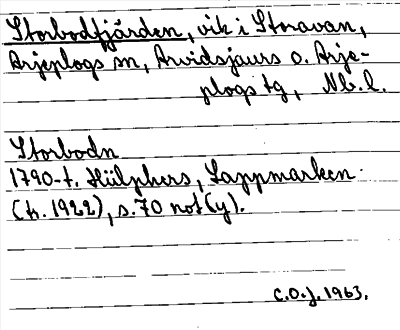 Storbodfjärden, vik i Storavan,
Arjeplogs sn, Arvidsjaurs o. Arje-
plogs tg, Nb. l.
Storbodn
1790-t. Hülphers, Lappmarken
(tr. 1922), s. 70 not (y).
C.O.J. 1963.